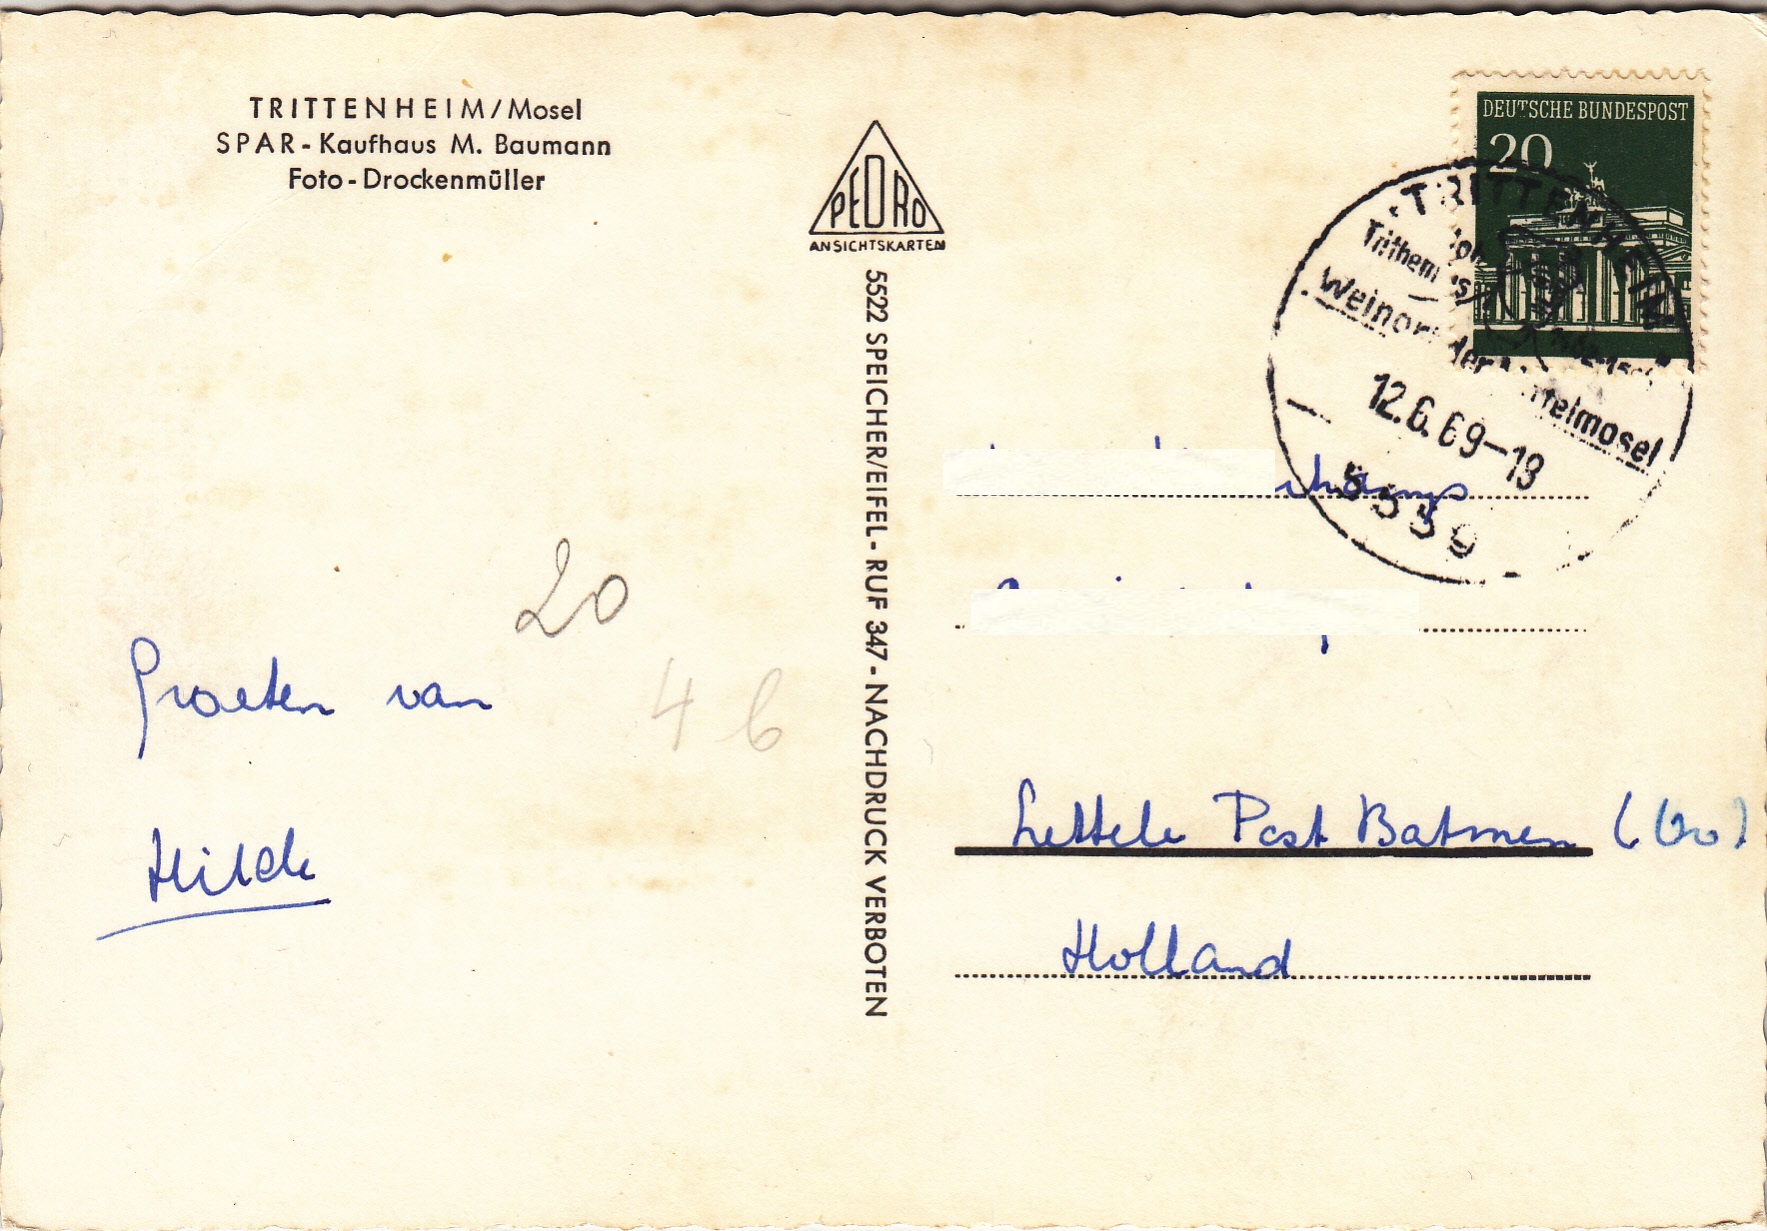 TRITTENHEIM/Mosel
SPAR-Kaufhaus M. Baumann
Foto-Drockenmüller
PEDRO
ANSICHTSKARTEN
5522 SPEICHER/EIFEL - RUF 347 - NACHDRUCK VERBOTEN
DEUTSCHE BUNDESPOST
20
TRITTENHEIM
Weinort der Mittelmosel
12.6.69-18
5559
20
4 6
Groeten van
Hilde
Lettele Post Batmen (Ov)
Holland